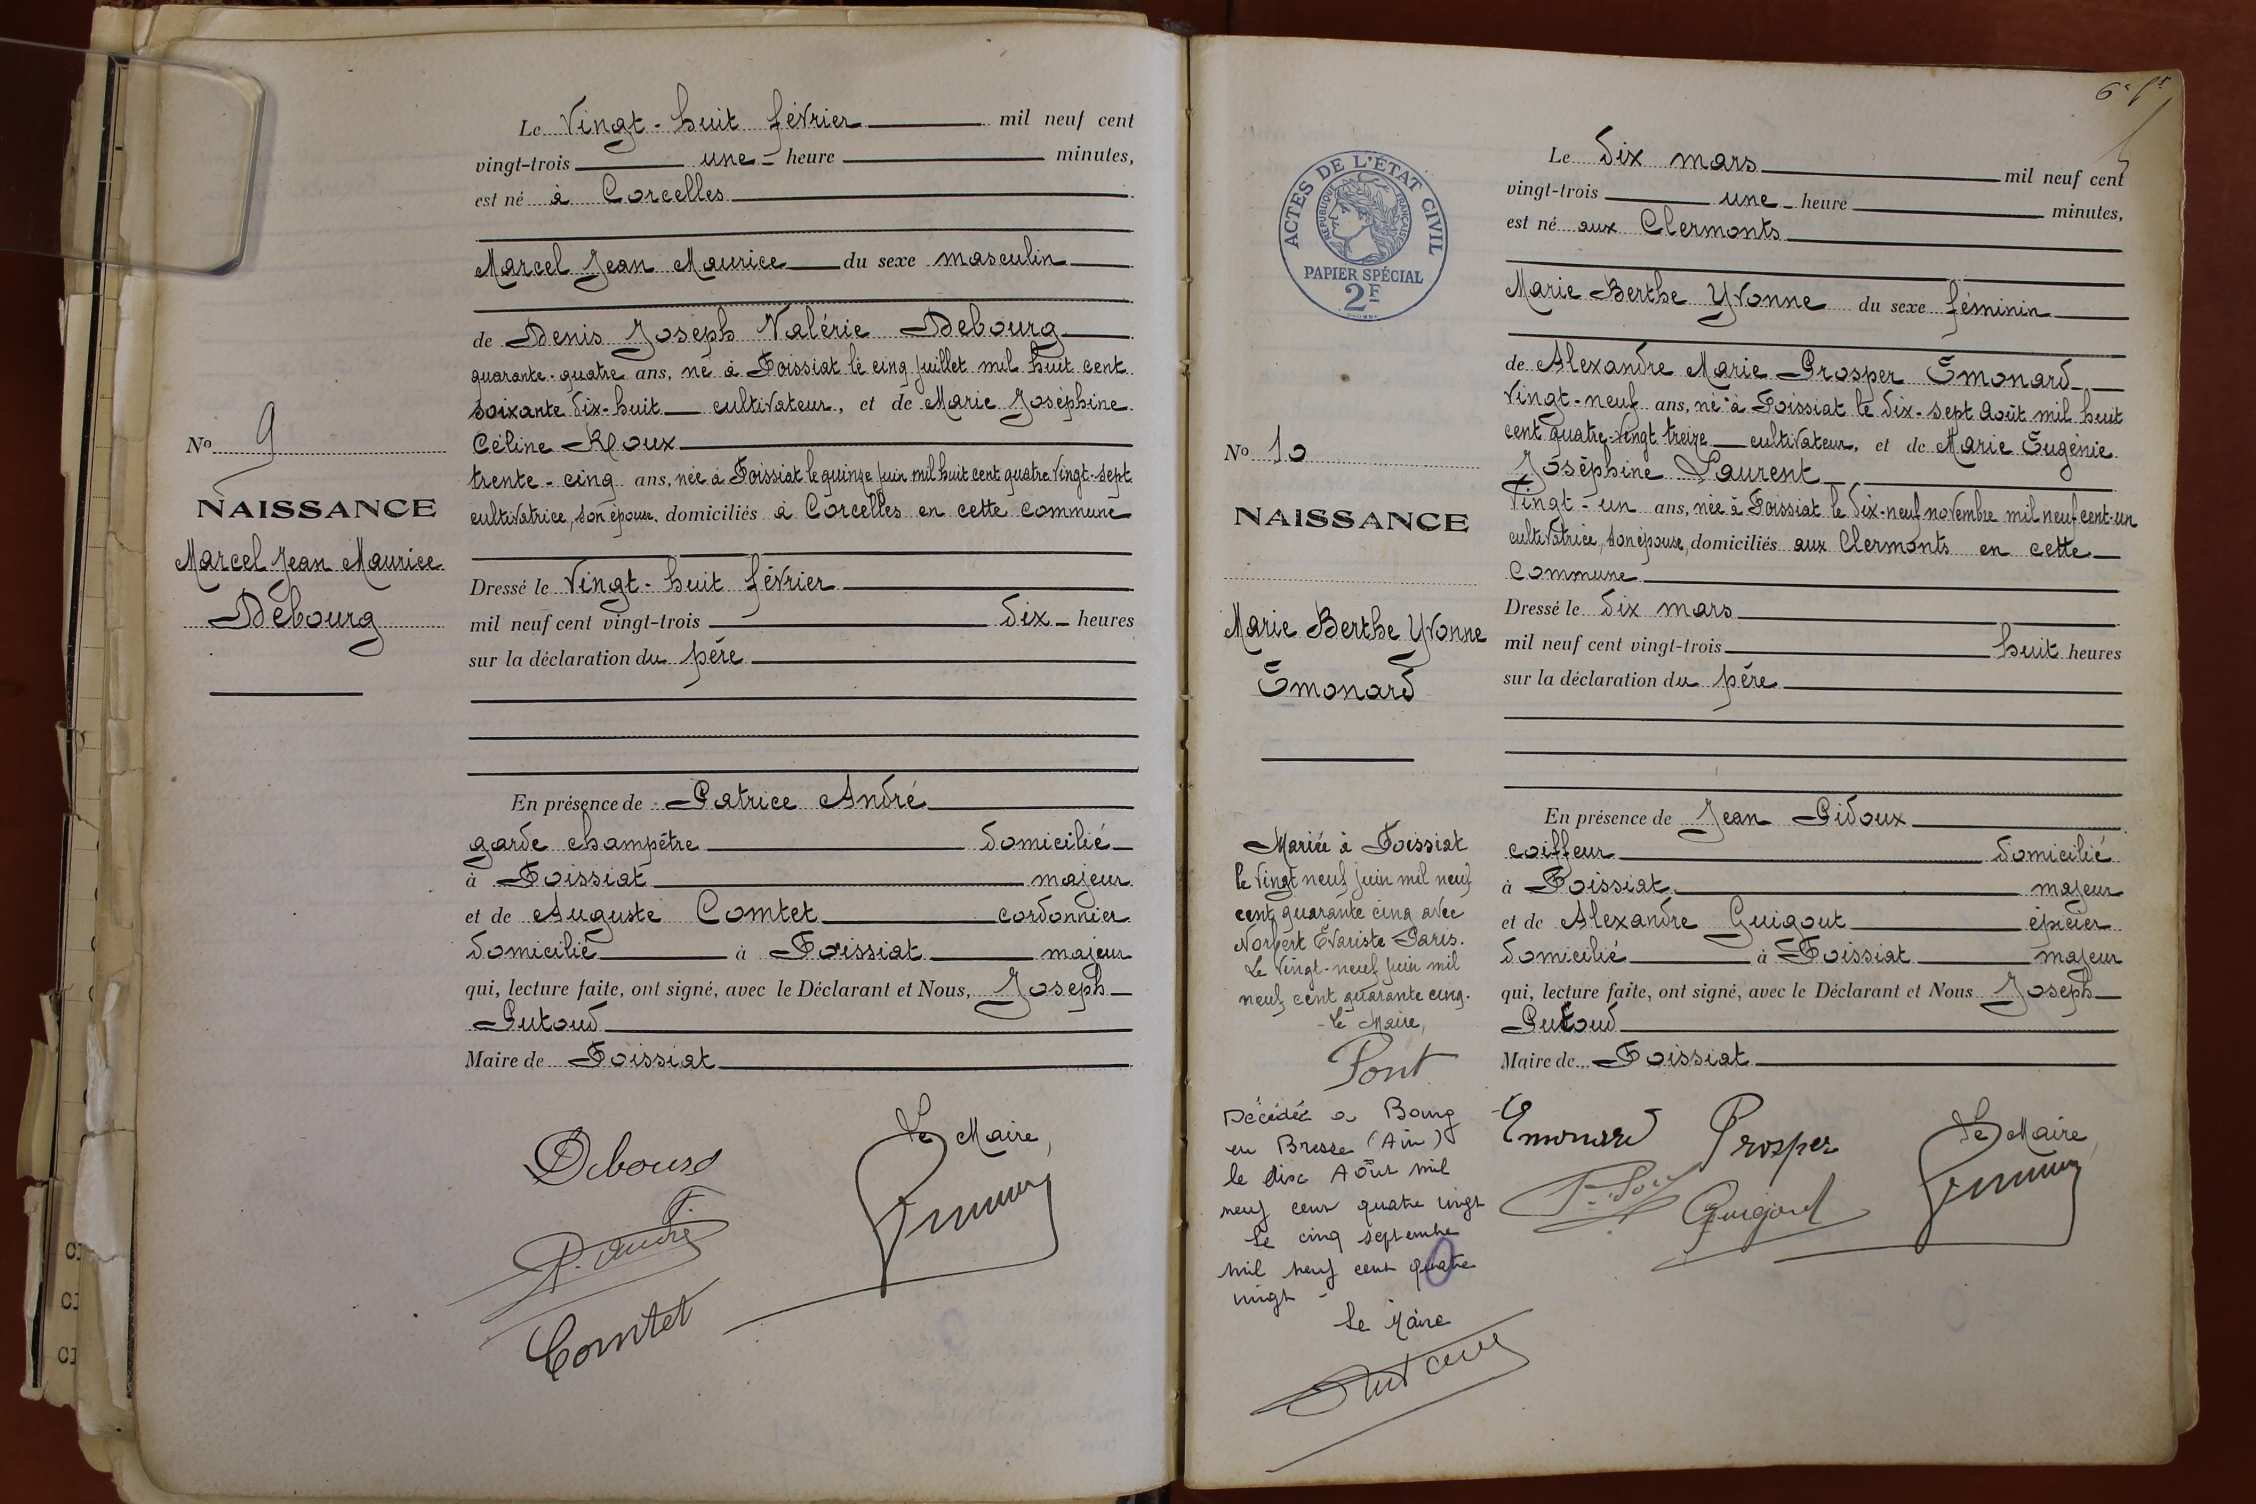 Le Vingt-huit février mil neuf cent
vingt-trois une heure minutes,
est né à Corcelles
Marcel Jean Maurice du sexe masculin
de Denis Joseph Valérie Debourg
quarante-quatre ans, né à Foissiat le cinq juillet mil huit cent
soixante dix-huit cultivateur, et de Marie Joséphine
Céline Roux
trente-cinq ans, née à Foissiat le quinze juin mil huit cent quatre vingt-sept
cultivatrice, son épouse, domiciliés à Corcelles en cette commune
Dressé le Vingt-huit février
mil neuf cent vingt-trois dix heures
sur la déclaration du père
En présence de Patrice André
garde champêtre domicilié
à Foissiat majeur
et de Auguste Comtet cordonnier
domicilié à Foissiat majeur
qui, lecture faite, ont signé, avec le Déclarant et Nous, Joseph
Putoud
Maire de Foissiat
Le Maire,
Debourg
P. André
Comtet
No 9
NAISSANCE
Marcel Jean Maurice
Debourg
6e ft
ACTES DE L'ÉTAT CIVIL
RÉPUBLIQUE FRANÇAISE
PAPIER SPÉCIAL
2F
Le dix mars mil neuf cent
vingt-trois une heure minutes,
est né aux Clermonts
Marie Berthe Yvonne du sexe féminin
de Alexandre Marie Prosper Emonard
Vingt-neuf ans, né à Foissiat le dix-sept Août mil huit
cent quatre-vingt treize cultivateur, et de Marie Eugénie
Joséphine Laurent
Vingt-un ans, née à Foissiat le dix-neuf novembre mil neuf cent-un
cultivatrice, son épouse, domiciliés aux Clermonts en cette
commune
Dressé le dix mars
mil neuf cent vingt-trois huit heures
sur la déclaration du père
En présence de Jean Pidoux
coiffeur domicilié
à Foissiat majeur
et de Alexandre Guigout épicier
domicilié à Foissiat majeur
qui, lecture faite, ont signé, avec le Déclarant et Nous Joseph
Putoud
Maire de Foissiat
Emonard Prosper
Le Maire,
Guigout
No 10
NAISSANCE
Marie Berthe Yvonne
Emonard
Mariée à Foissiat
le vingt neuf juin mil neuf
cent quarante cinq avec
Norbert Evariste Paris.
Le Vingt-neuf juin mil
neuf cent quarante cinq.
Le Maire,
Pont
Décédée a Bourg
en Bresse (Ain)
le dix Août mil
neuf cent quatre vingt
Le cinq septembre
mil neuf cent quatre
vingt -
Le Maire